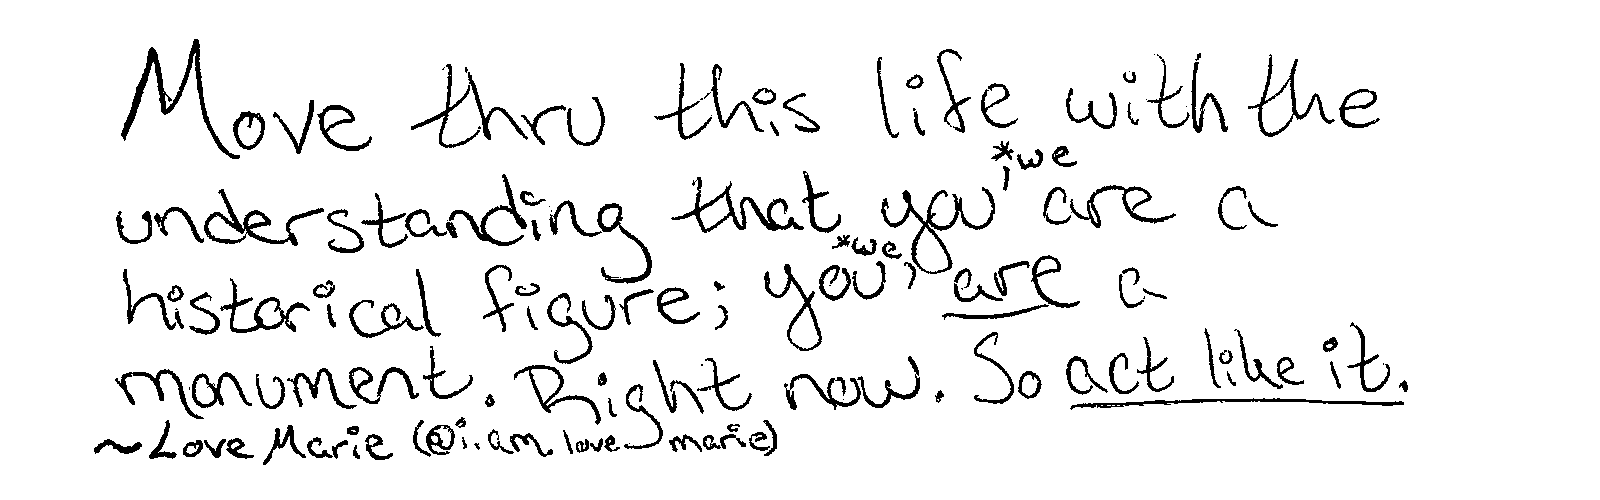 Move thru this life with the
understanding that you, *we are a
historical figure; you, *we are a
monument. Right now. So act like it.
~Love Marie (@i.am.love_marie)